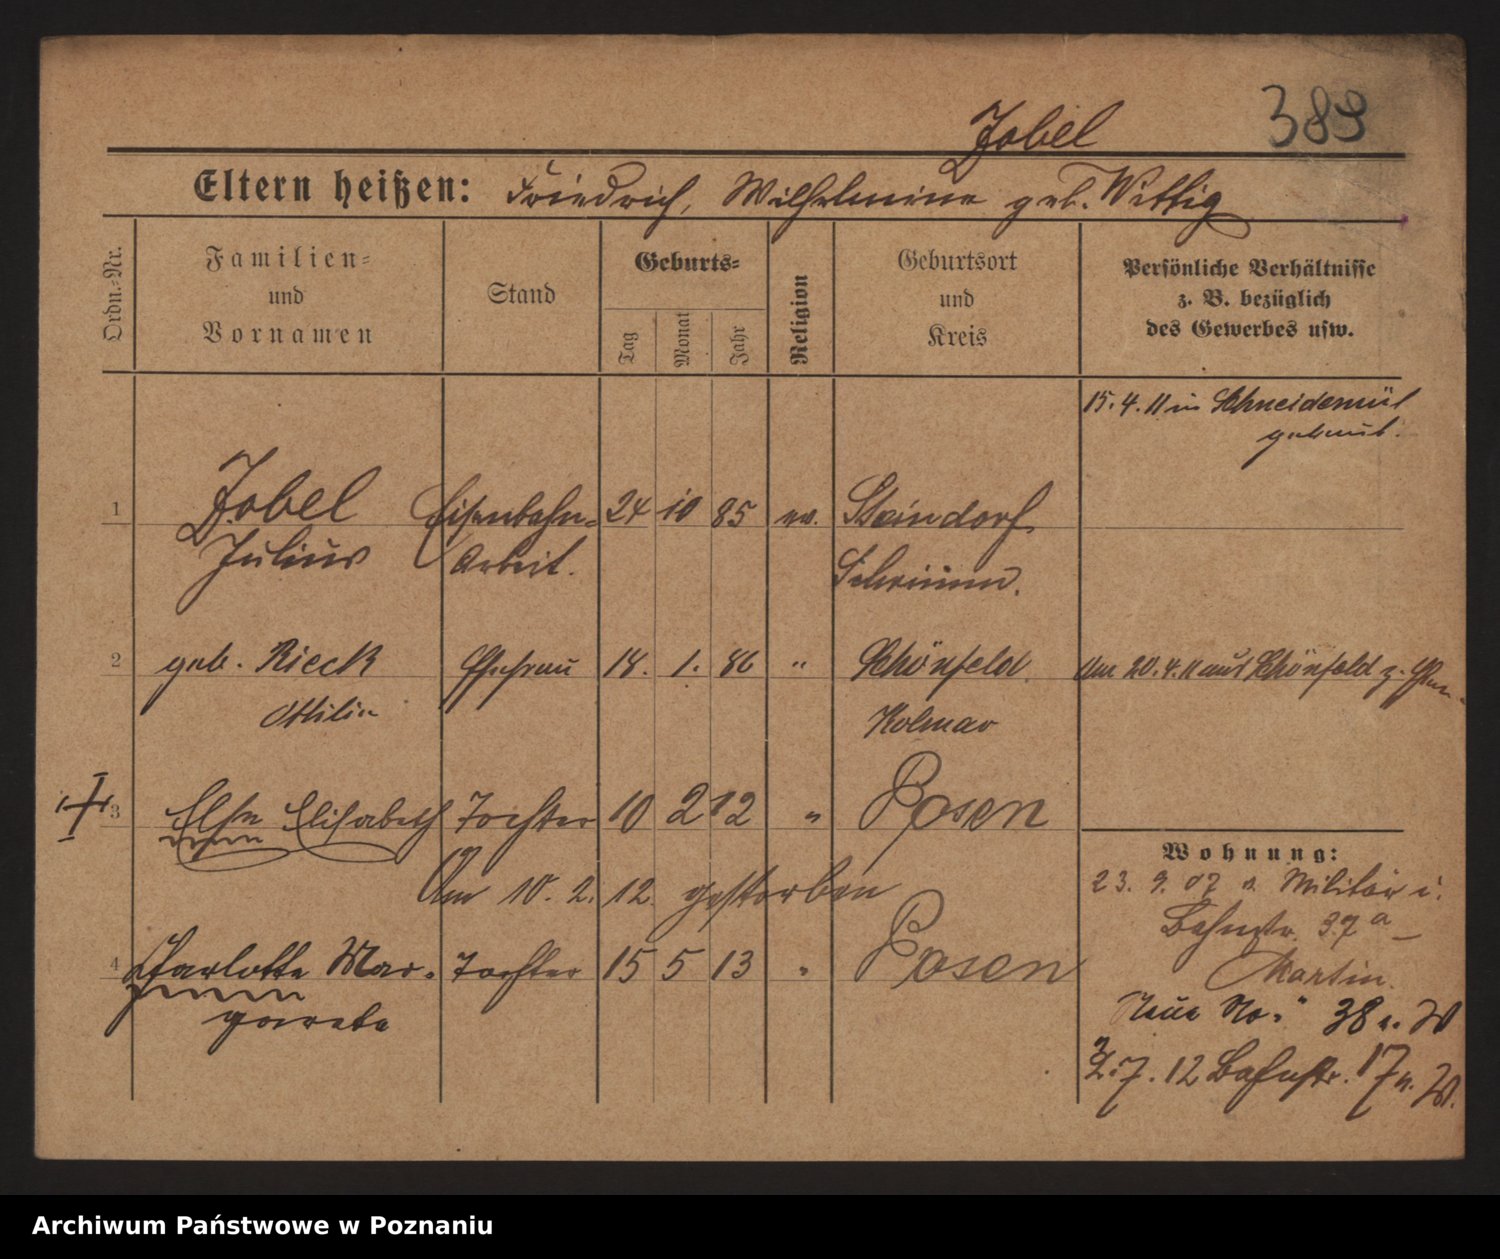 389
Zobel
Eltern heißen: Friedrich, Wilhelmine geb. Wittig
Ordn.-Nr.
Familien-
und
Vornamen
Stand
Geburts-
Tag
Monat
Jahr
Religion
Geburtsort
und
Kreis
Persönliche Verhältnisse
z. B. bezüglich
des Gewerbes usw.
15.4.11 in Schneidemül
getraut.
1 Zobel Eisenbahn- 24 10 85 ev. Steindorf
Julius Arbeit. Schrimm.
2 geb. Rieck Ehefrau 18. 1. 86 " Schönfeld Am 20.4.11 aus Schönfeld z. Ehem.
Ottilie Kolmar
3 Else Elisabeth Tochter 10 2 12 " Posen
Am 10. 2. 12. gestorben
4 Charlotte Mar- Tochter 15 5 13 " Posen
garete
Wohnung:
23. 9. 07 v. Militär i.
Bahnstr. 37a
Martin.
Neue No. 38 n. W
2.7.12 Bahnstr. 17 n. W.
Archiwum Państwowe w Poznaniu